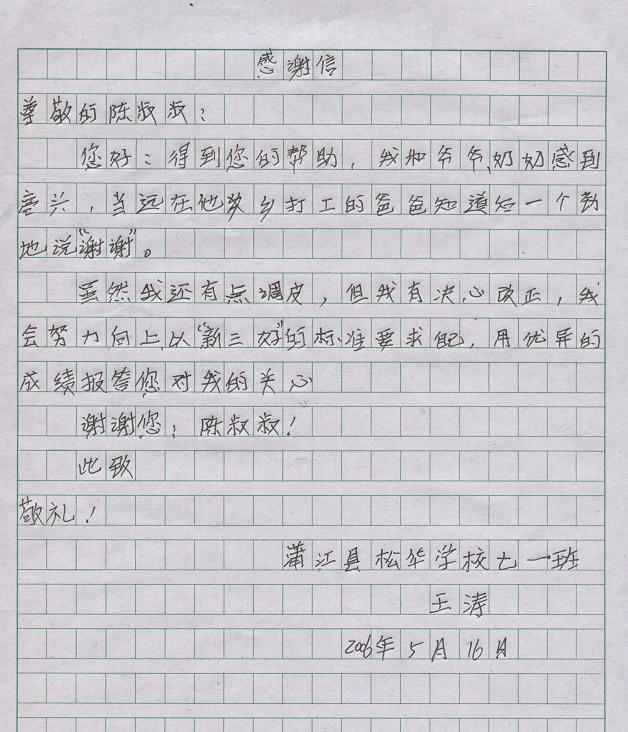 感谢信
尊敬的陈叔叔：
您好：得到您的帮助，我和爷爷、奶奶感到
高兴，当远在他乡打工的爸爸知道后一个劲
地说“谢谢”。
虽然我还有点调皮，但我有决心改正，我
会努力向上，以“新三好”的标准要求自己，用优异的
成绩报答您对我的关心
谢谢您；陈叔叔！
此致
敬礼！
蒲江县松华学校七一班
王涛
2006年5月16日